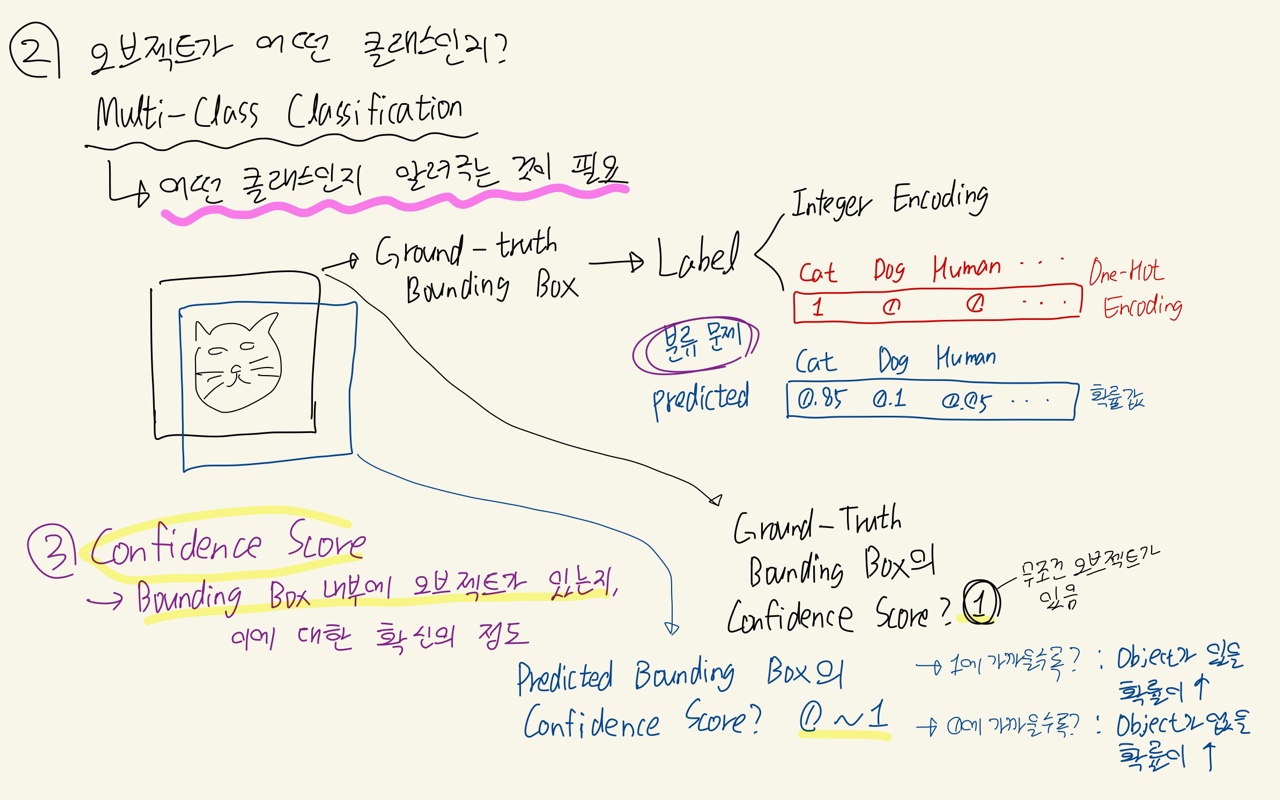 ② 오브젝트가 어떤 클래스인지?
Multi-Class Classification
↳ 어떤 클래스인지 알려주는 것이 필요
Ground-truth
Bounding Box
→ Label
Integer Encoding
Cat Dog Human ...
1 0 0 ...
One-Hot
Encoding
분류 문제
predicted
Cat Dog Human
0.85 0.1 0.05 ...
확률값
③ Confidence Score
→ Bounding Box 내부에 오브젝트가 있는지,
이에 대한 확신의 정도
Ground-Truth
Bounding Box의
Confidence Score? 1
무조건 오브젝트가
있음
Predicted Bounding Box의
Confidence Score? 0 ~ 1
→ 1에 가까울수록? : Object가 있을
확률이 ↑
→ 0에 가까울수록? : Object가 없을
확률이 ↑